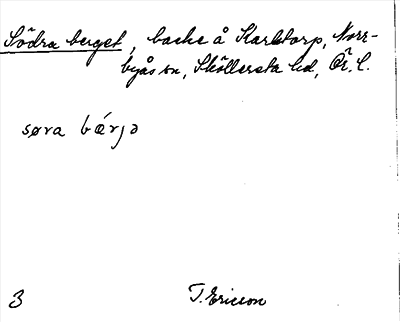 Södra berget, backe å Karlstorp, Norr-
byås sn, Sköllersta hd, Ör. l.
søra bærjə
3 T. Ericson